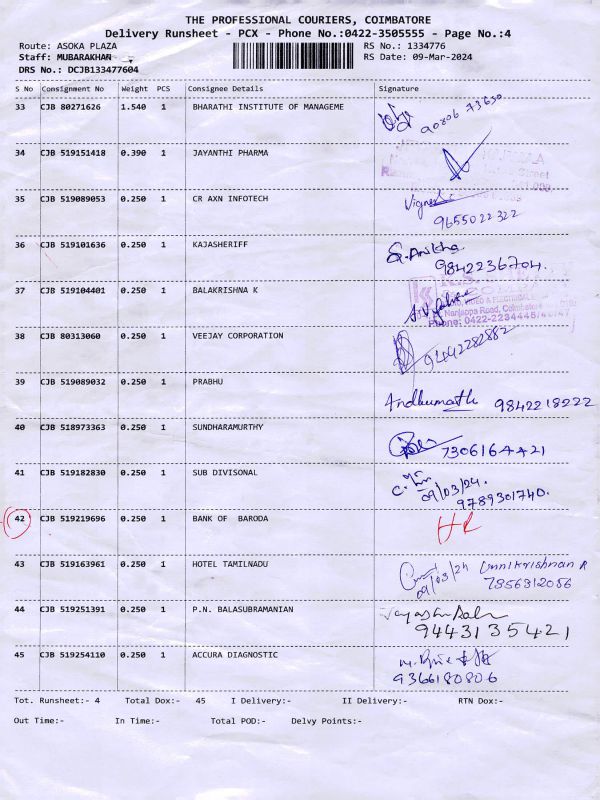 THE PROFESSIONAL COURIERS, COIMBATORE
Delivery Runsheet - PCX - Phone No.:0422-3505555 - Page No.:4
Route: ASOKA PLAZA RS No.: 1334776
Staff: MUBARAKHAN RS Date: 09-Mar-2024
DRS No.: DCJB133477604
S No Consignment No Weight PCS Consignee Details Signature
33 CJB 80271626 1.540 1 BHARATHI INSTITUTE OF MANAGEME
90806 73650
34 CJB 519151418 0.390 1 JAYANTHI PHARMA
35 CJB 519089053 0.250 1 CR AXN INFOTECH
9655022322
36 CJB 519101636 0.250 1 KAJASHERIFF
9842236704.
37 CJB 519104401 0.250 1 BALAKRISHNA K
Nanjappa Road, Coimbatore
Phone: 0422-2234446/
38 CJB 80313060 0.250 1 VEEJAY CORPORATION
39 CJB 519089032 0.250 1 PRABHU
9842218222
40 CJB 518973363 0.250 1 SUNDHARAMURTHY
7306164421
41 CJB 519182830 0.250 1 SUB DIVISONAL
09/03/24.
9789301740.
42 CJB 519219696 0.250 1 BANK OF BARODA
43 CJB 519163961 0.250 1 HOTEL TAMILNADU
09/03/24 Unnikrishnan R
7856312056
44 CJB 519251391 0.250 1 P.N. BALASUBRAMANIAN
9443135421
45 CJB 519254110 0.250 1 ACCURA DIAGNOSTIC
9366180806
Tot. Runsheet:- 4 Total Dox:- 45 I Delivery:- II Delivery:- RTN Dox:-
Out Time:- In Time:- Total POD:- Delvy Points:-